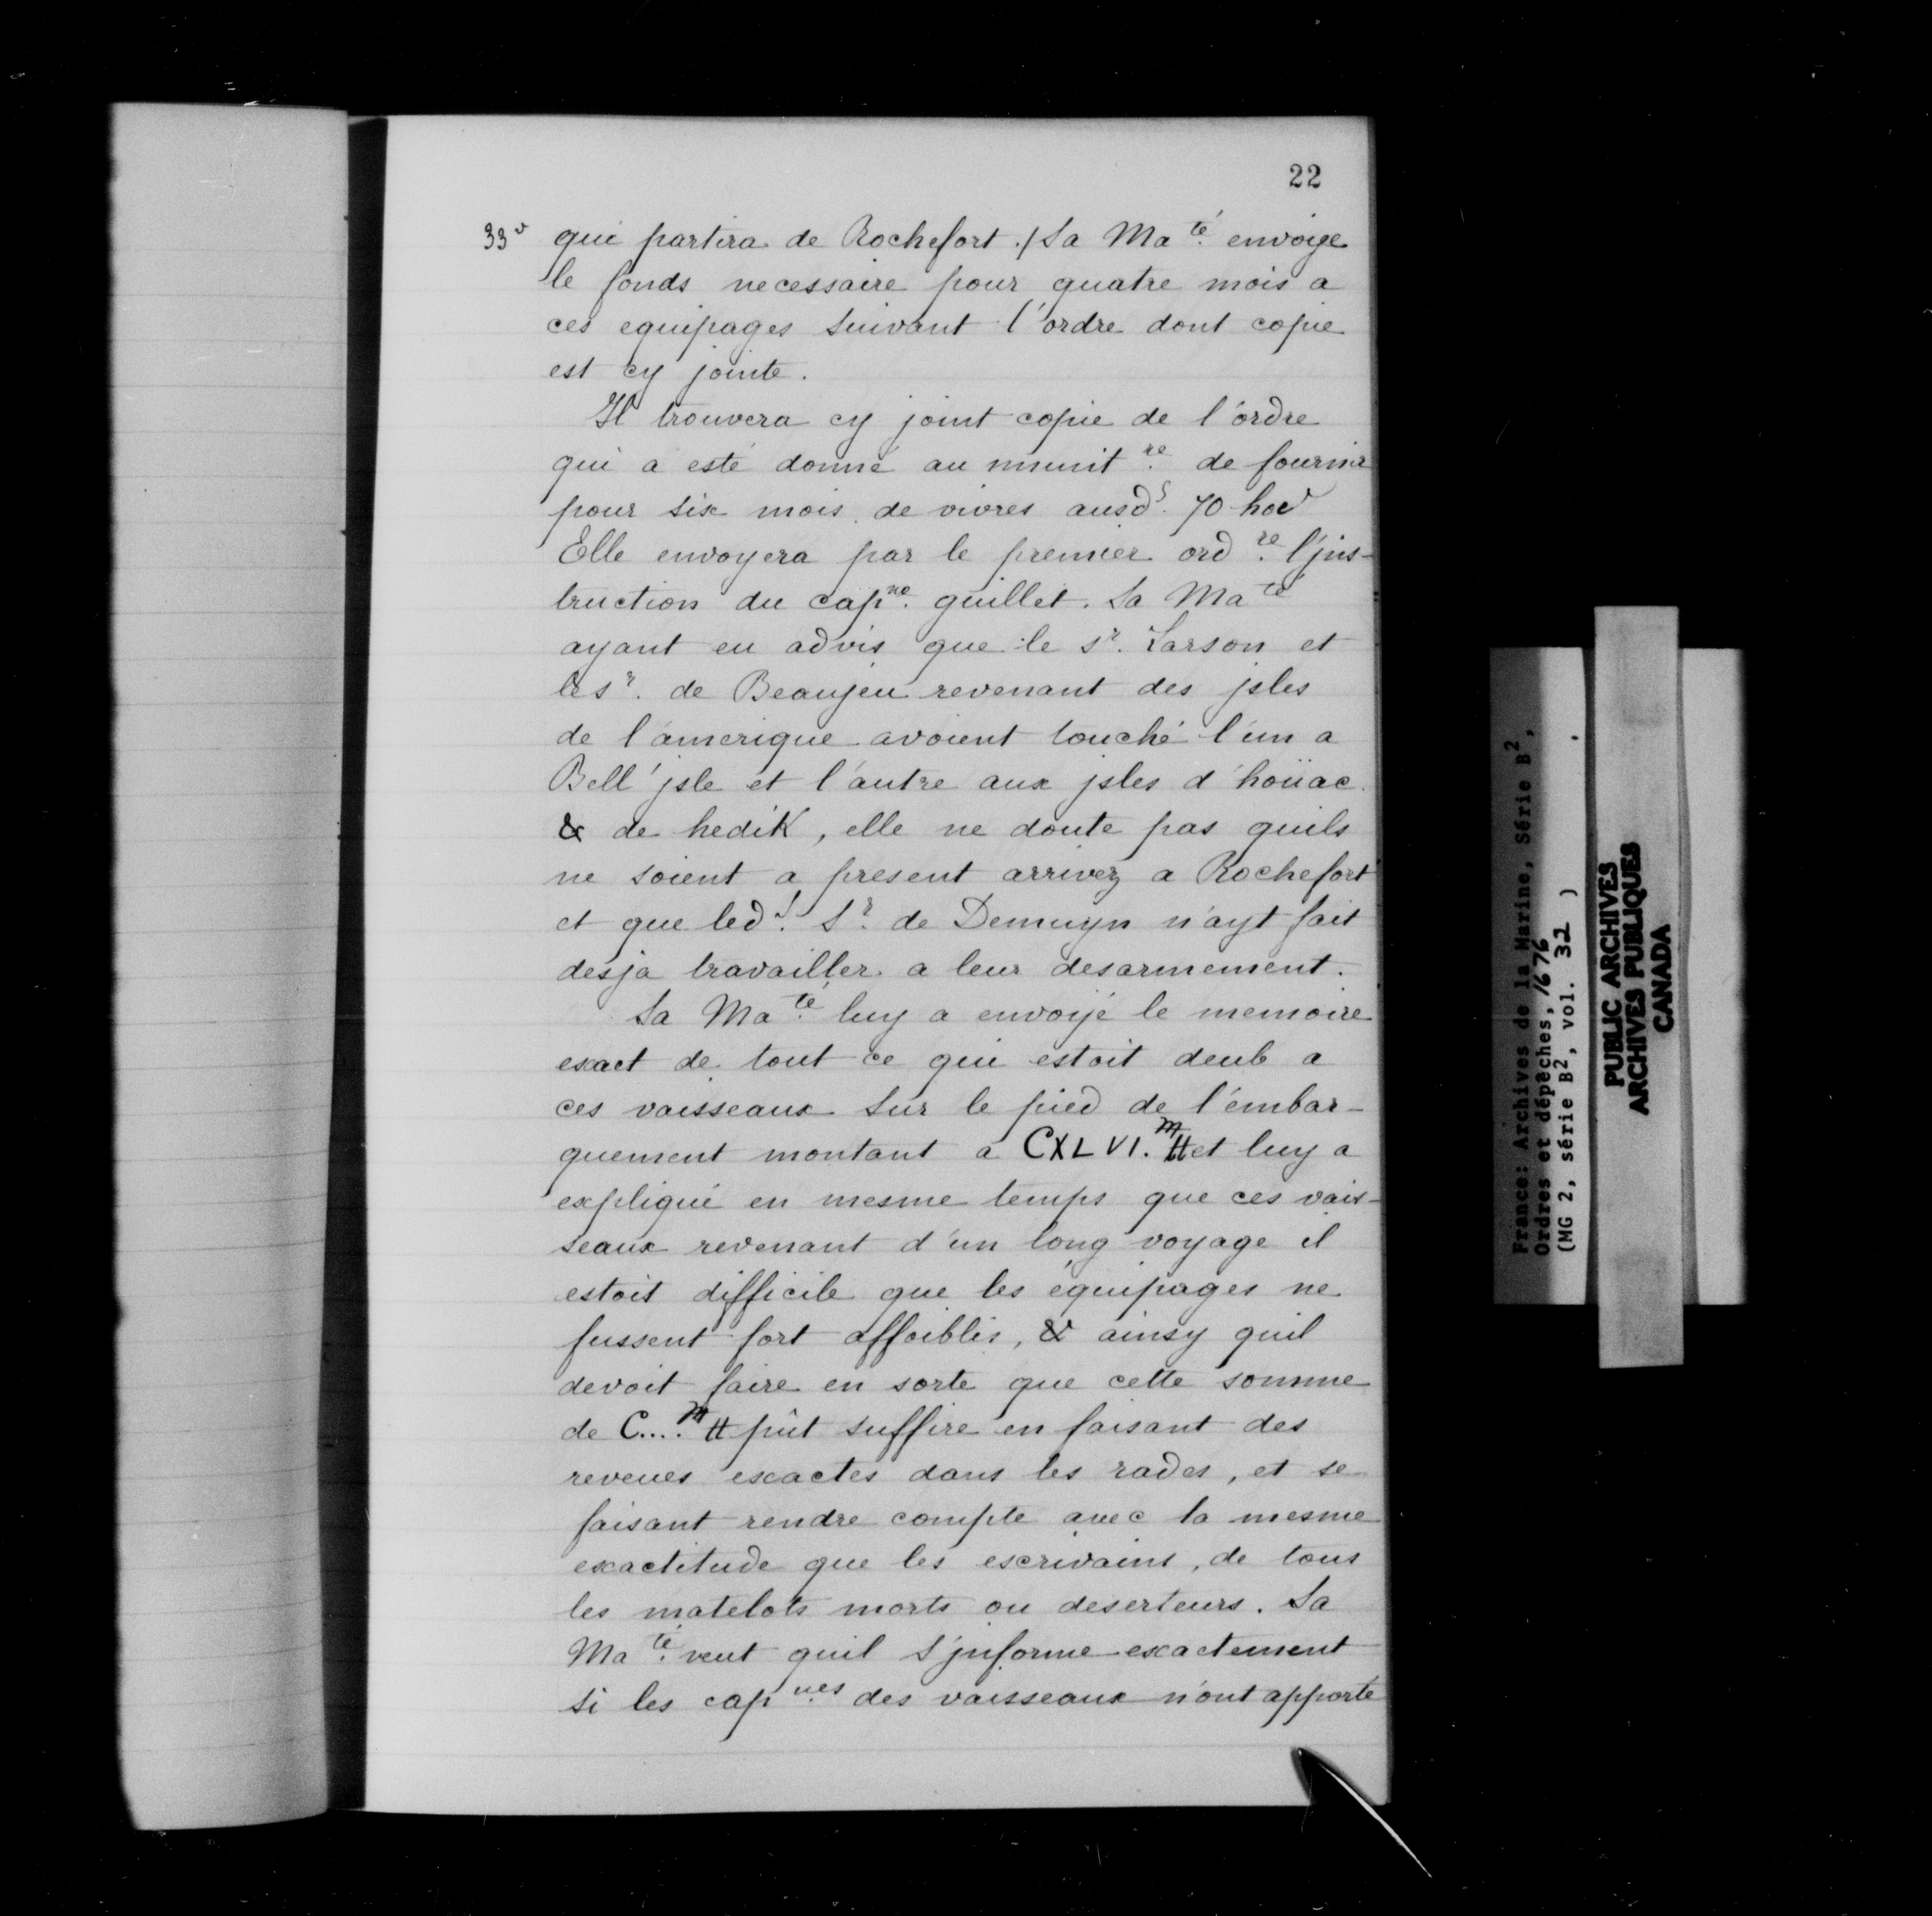 22
33v qui partira de Rochefort ./ Sa Ma.té envoye
le fonds necessaire pour quatre mois a
ces equipages suivant l'ordre dont copie
est cy jointe.
Il trouvera cy joint copie de l'ordre
qui a esté donné au munit.re de fournir
pour six mois de vivres ausd.s 70 hoes
Elle envoyera par le premier ord.re l'jns-
truction du cap.ne guillet. Sa Ma.té
ayant eu advis que le sr. Larson et
le sr. de Beaujeu revenant des jsles
de l'amerique avoient touché l'un a
Bell'jsle et l'autre aux jsles d'hoüac
& de hedik, elle ne doute pas quils
ne soient a present arrivez a Rochefort
et que led.t Sr. de Demuyn n'ayt fait
desja travailler a leur desarmement.
Sa Ma.té luy a envoyé le memoire
exact de tout ce qui estoit deub a
ces vaisseaux sur le pied de l'embar-
quement montant a CXLVI.m ₶ et luy a
expliqué en mesme temps que ces vais-
seaux revenant d'un long voyage il
estoit difficile que les équipages ne
fussent fort affoiblis, & ainsy quil
devoit faire en sorte que cette somme
de C....m ₶ pût suffire en faisant des
reveues exactes dans les rades, et se
faisant rendre compte avec la mesme
exactitude que les escrivains, de tous
les matelots morts ou deserteurs. Sa
Ma.té veut quil s'jnforme exactement
si les cap.nes des vaisseaux n'ont apporté
France: Archives de la Marine, Série B2,
Ordres et dépêches, 1676
(MG 2, série B2, vol. 32 )
PUBLIC ARCHIVES
ARCHIVES PUBLIQUES
CANADA